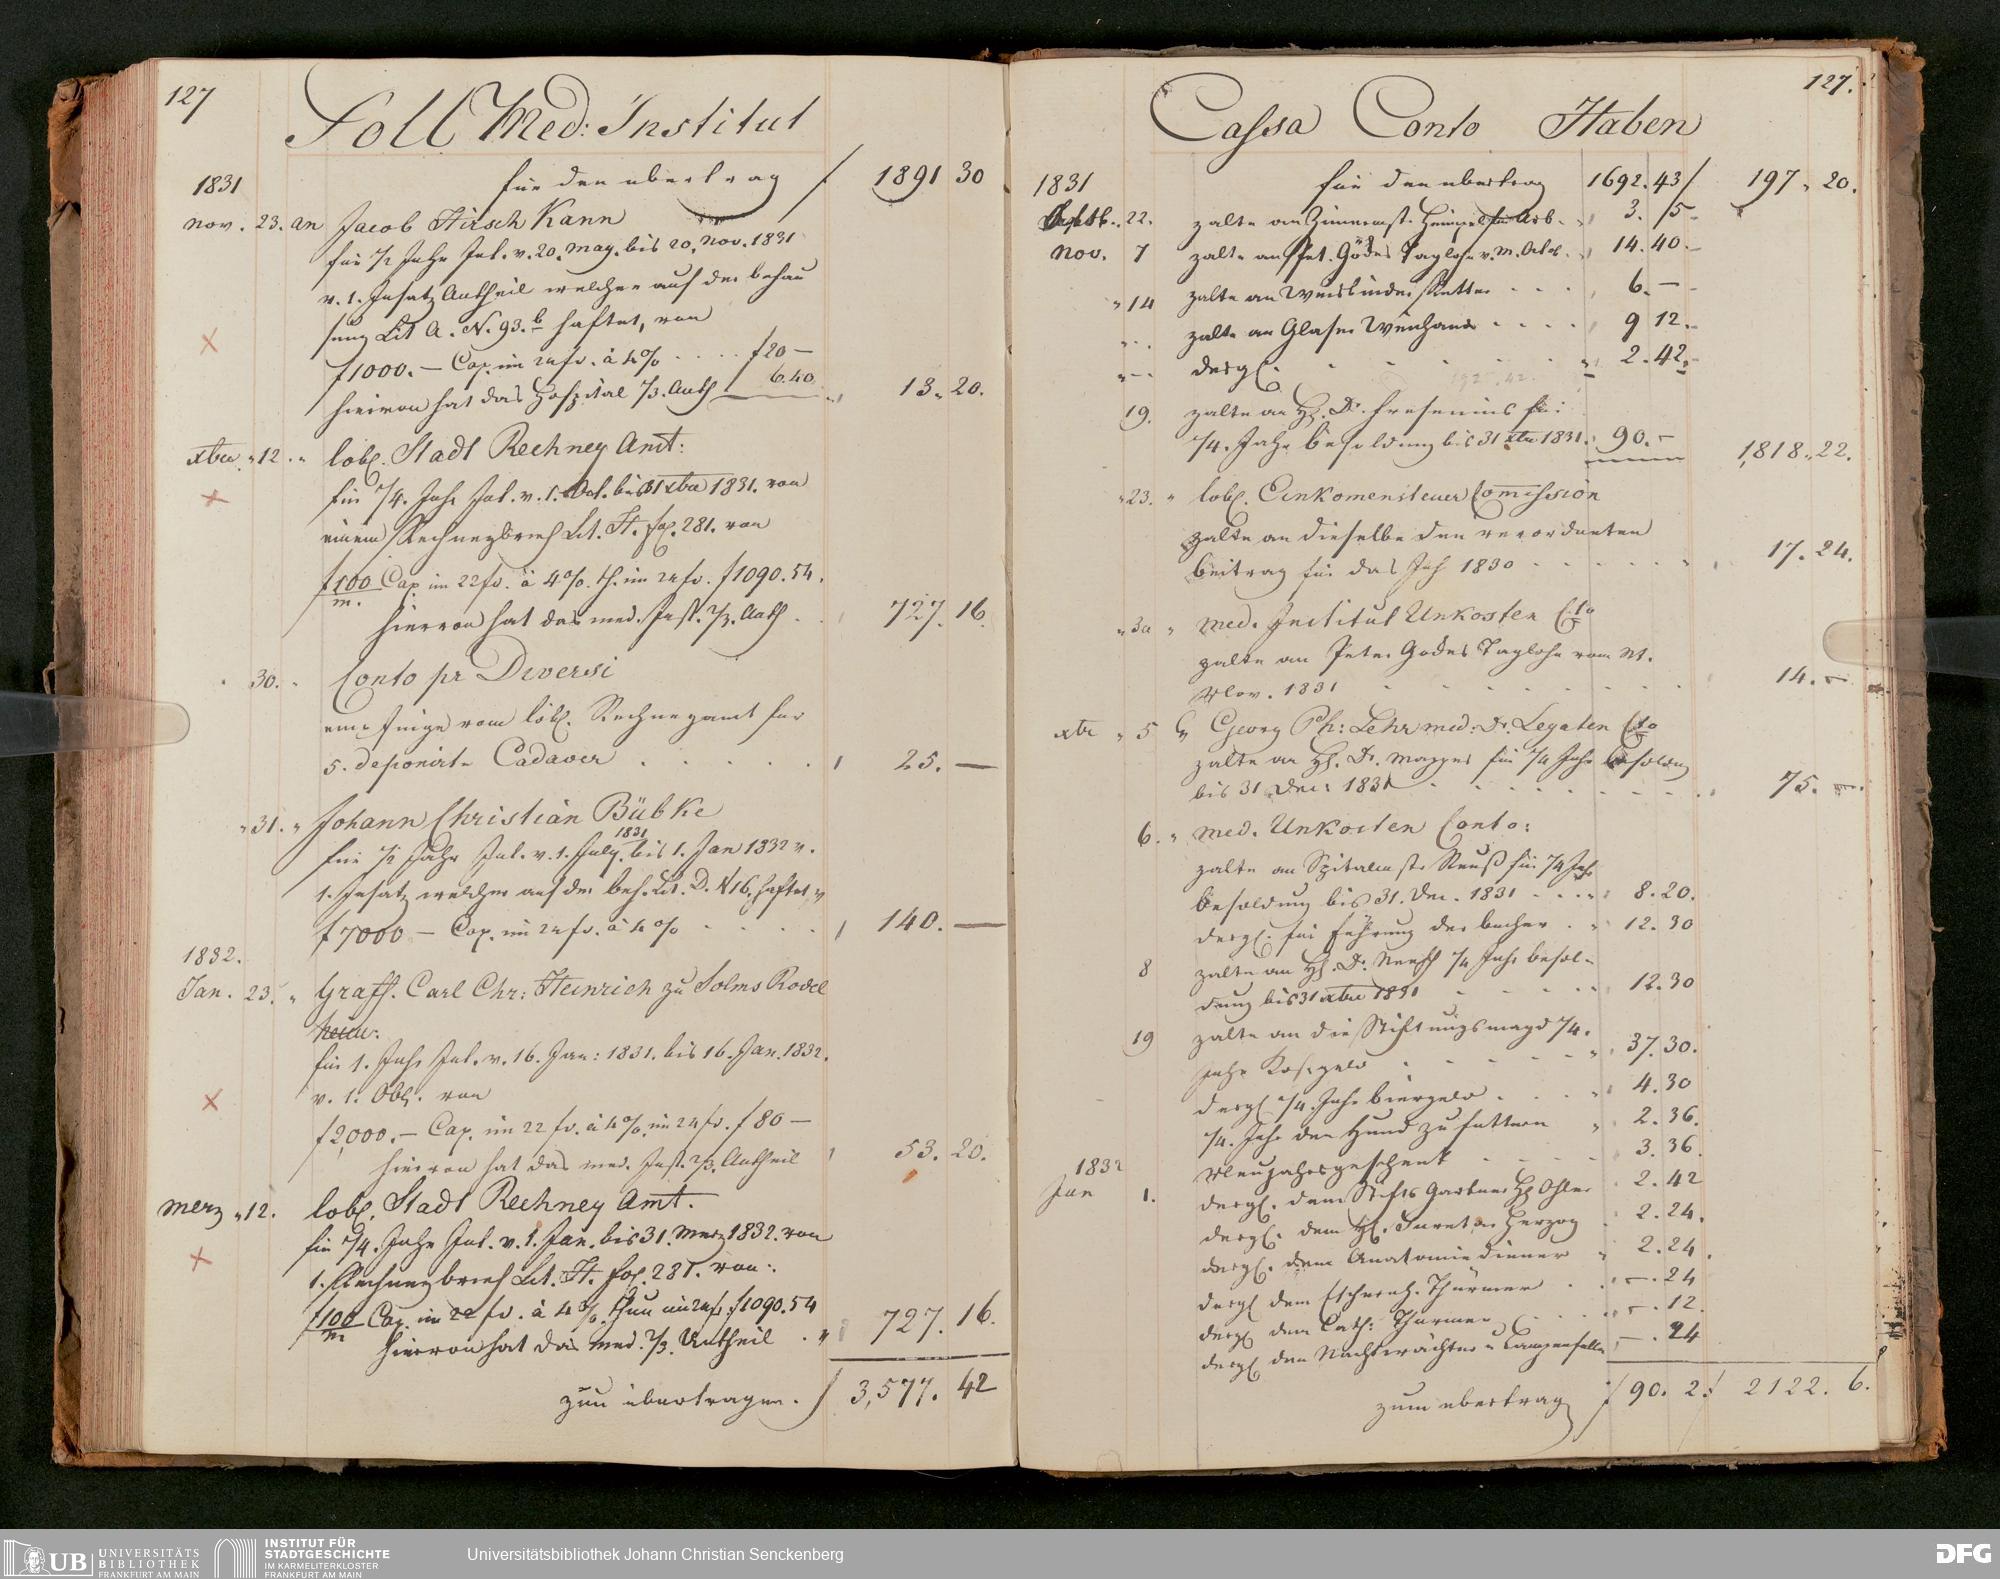 127
Soll Med: Institut
1831 für den übertrag f 1891 30
nov. 23. an Jacob Hirsch Kann
für ½ Jahr Int. v. 20. May. bis 20. Nov. 1831
v. 1. Insatz Antheil welcher auf der behau
sung Lit A. N. 93. b haftet, von
f 1000. — Cap. im 24 fl. à 4% . . . . f 20 —
hievon hat das Hospital ⅓. Anth 6.40 13. 20.
xbre 12. " löbl. Stadt Rechney Amt:
für ¼. Jahr Int. v. 1. Oct. bis 31 xbre 1831. von
einem Rechneybrief Lit. H. fol. 281. von
f 100/m. Cap im 22 fl. à 4%. th. im 24 fl. f 1090. 54.
hievon hat das med. Inst. ⅔. Anth . 727. 16.
30. " Conto pr Diversi
vom löbl. Rechneyamt für
5. deponirte Cadaver . . . . . 25. —
" 31. " Johann Christian Bübke
für ½ Jahr Int. v. 1. July 1831 bis 1. Jan 1832 v.
1. Insatz welcher auf der beh. Lit. D. N 16. haftet v
f 7000 — Cap. im 24 fl. à 4% . . . . 140. —
1832.
Jan. 23. " Graff. Carl Chr: Heinrich zu Solms Rodel
heim:
für 1. Jahr Int. v. 16. Jan: 1831. bis 16. Jan. 1832.
v. 1. Obl. von
f 2,000. — Cap. im 22 fl. à 4%. im 24 fl. f 80 —
hievon hat das med. Inst. ⅔. Antheil 53. 20.
Merz " 12. löbl. Stadt Rechney Amt.
für ¼. Jahr Int. v. 1. Jan. bis 31. Merz 1832. von
1. Rechneybrief Lit. H. fol. 281. von:
f 100/m Cap. im 22 fl. à 4%. thun im 24 fl. f 1090. 54
hievon hat das med. ⅔. Antheil . " 727. 16.
zuu übertragen. f 3,577. 42
127.
Cassa Conto Haben
1831 für den übertrag 1692. 43 / 197. 20.
Septb. 22. zalte an Zimmermstr. Arb. 3. 15
Nov. 7 zalte an Pet. Gödes Taglohn v. M. Octob. 14. 40.
" 14 zalte an Weisbinder Retter . . . . 6. —
zalte an Glaser Weinhand . . . . 9 12.
dergl. 2. 42.
19. zalte an H. Dr. Fresenius für
¼. Jahr besoldung bis 31 xbre 1831. 90. — 1,818. 22.
" 23. " löbl. Einkomensteuer Comission
zalte an dieselbe den verordneten
beitrag für das Jah 1830 . . . . . . 17. 24.
" 30 " med. Institut Unkosten Cto
zalte an Peter Godes Taglohn vom M.
Nov. 1831 14. —
xbr " 5 " Georg Ph: Lehr med: Dr. Legaten Cto
zalte an H. Dr. Mappes für ¼ Jahr besoldung
bis 31 Dec: 1831 75. —
6. " med. Unkosten Conto:
zalte an Spitalmstr Reuß für ¼ Jahr
besoldung bis 31. Dec. 1831 . . . . 8. 20.
dergl. für Führung der bücher . 12. 30
8 zalte an H. Dr. Neeff ¼ Jahr besol-
dung bis 31 xbre 1831 12. 30
19 zalte an die Stiftungsmagd ¼.
Jahr Kostgeld 37. 30.
dergl ¼. Jahr biergeld . . . 4. 30
¼. Jahr den Hund zu futtern 2. 36.
Neujahrsgeschenk 3. 36.
1832
Jan 1. dergl. dem Stifts Gartner H. Ohler 2. 42
dergl. dem H. Herzog 2. 24.
dergl. dem Anatomiediener 2. 24.
dergl dem Eschenh. Thürmer . —. 24
dergl. dem Cath: Thurmer . . —. 12.
dergl den Nachtwächter u Lampenfüller —. 24
zum übertrag f 90. 2. f 2122. 6.
UB UNIVERSITÄTS
BIBLIOTHEK
FRANKFURT AM MAIN
INSTITUT FÜR
STADTGESCHICHTE
IM KARMELITERKLOSTER
FRANKFURT AM MAIN
Universitätsbibliothek Johann Christian Senckenberg
DFG